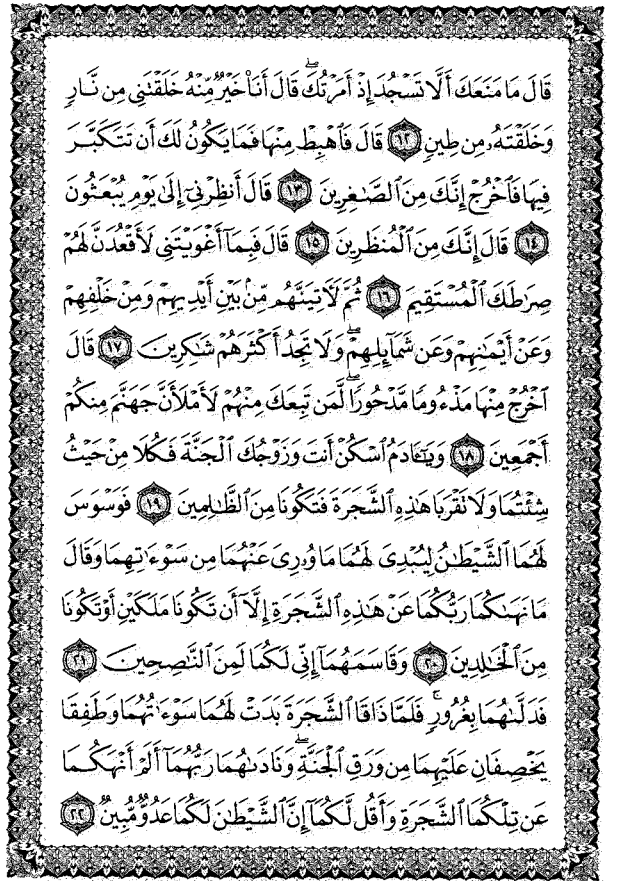 قَالَ مَا مَنَعَكَ أَلَّا تَسۡجُدَ إِذۡ أَمَرۡتُكَۖ قَالَ أَنَا۠ خَيۡرٞ مِّنۡهُ خَلَقۡتَنِي مِن نَّارٖ
وَخَلَقۡتَهُۥ مِن طِينٖ ١٢ قَالَ فَٱهۡبِطۡ مِنۡهَا فَمَا يَكُونُ لَكَ أَن تَتَكَبَّرَ
فِيهَا فَٱخۡرُجۡ إِنَّكَ مِنَ ٱلصَّٰغِرِينَ ١٣ قَالَ أَنظِرۡنِيٓ إِلَىٰ يَوۡمِ يُبۡعَثُونَ
١٤ قَالَ إِنَّكَ مِنَ ٱلۡمُنظَرِينَ ١٥ قَالَ فَبِمَآ أَغۡوَيۡتَنِي لَأَقۡعُدَنَّ لَهُمۡ
صِرَٰطَكَ ٱلۡمُسۡتَقِيمَ ١٦ ثُمَّ لَأٓتِيَنَّهُم مِّنۢ بَيۡنِ أَيۡدِيهِمۡ وَمِنۡ خَلۡفِهِمۡ
وَعَنۡ أَيۡمَٰنِهِمۡ وَعَن شَمَآئِلِهِمۡۖ وَلَا تَجِدُ أَكۡثَرَهُمۡ شَٰكِرِينَ ١٧ قَالَ
ٱخۡرُجۡ مِنۡهَا مَذۡءُومٗا مَّدۡحُورٗاۖ لَّمَن تَبِعَكَ مِنۡهُمۡ لَأَمۡلَأَنَّ جَهَنَّمَ مِنكُمۡ
أَجۡمَعِينَ ١٨ وَيَٰٓـَٔادَمُ ٱسۡكُنۡ أَنتَ وَزَوۡجُكَ ٱلۡجَنَّةَ فَكُلَا مِنۡ حَيۡثُ
شِئۡتُمَا وَلَا تَقۡرَبَا هَٰذِهِ ٱلشَّجَرَةَ فَتَكُونَا مِنَ ٱلظَّٰلِمِينَ ١٩ فَوَسۡوَسَ
لَهُمَا ٱلشَّيۡطَٰنُ لِيُبۡدِيَ لَهُمَا مَا وُۥرِيَ عَنۡهُمَا مِن سَوۡءَٰتِهِمَا وَقَالَ
مَا نَهَىٰكُمَا رَبُّكُمَا عَنۡ هَٰذِهِ ٱلشَّجَرَةِ إِلَّآ أَن تَكُونَا مَلَكَيۡنِ أَوۡ تَكُونَا
مِنَ ٱلۡخَٰلِدِينَ ٢٠ وَقَاسَمَهُمَآ إِنِّي لَكُمَا لَمِنَ ٱلنَّٰصِحِينَ ٢١
فَدَلَّىٰهُمَا بِغُرُورٖۚ فَلَمَّا ذَاقَا ٱلشَّجَرَةَ بَدَتۡ لَهُمَا سَوۡءَٰتُهُمَا وَطَفِقَا
يَخۡصِفَانِ عَلَيۡهِمَا مِن وَرَقِ ٱلۡجَنَّةِۖ وَنَادَىٰهُمَا رَبُّهُمَآ أَلَمۡ أَنۡهَكُمَا
عَن تِلۡكُمَا ٱلشَّجَرَةِ وَأَقُل لَّكُمَآ إِنَّ ٱلشَّيۡطَٰنَ لَكُمَا عَدُوّٞ مُّبِينٞ ٢٢